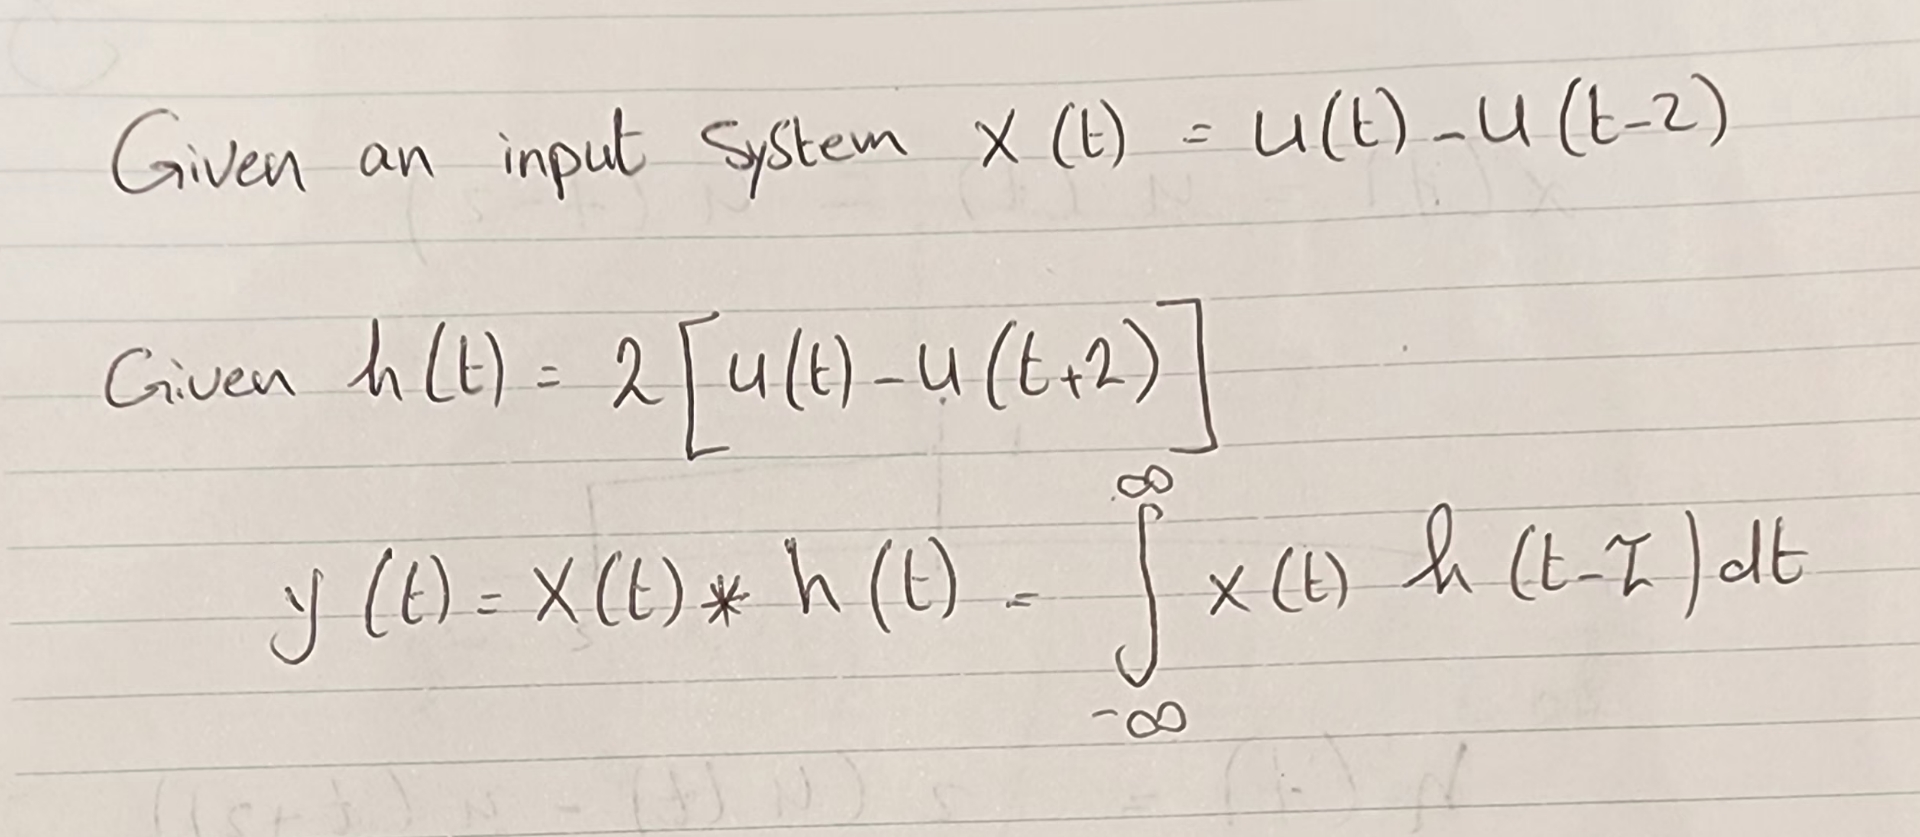 Given an input system x(t) = u(t) - u(t-2)
Given h(t) = 2[u(t) - u(t+2)]
y(t) = x(t) * h(t) = ∫_{-∞}^{∞} x(t) h(t-τ) dt